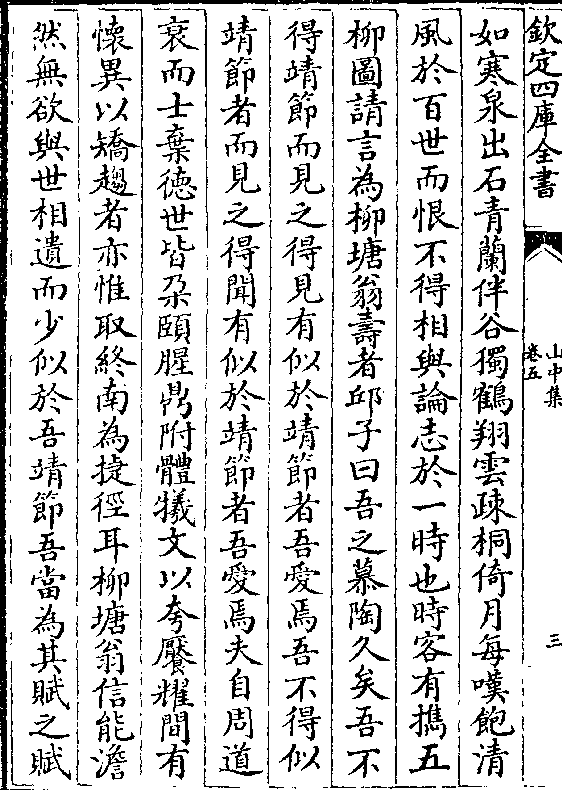 欽定四庫全書
山中集
卷五
三
如寒泉出石青蘭伴谷獨鶴翔雲疎桐倚月每嘆飽清
風於百世而恨不得相與論志於一時也時客有擕五
柳圖請言為柳塘翁壽者邱子曰吾之慕陶久矣吾不
得靖節而見之得見有似於靖節者吾愛焉吾不得似
靖節者而見之得聞有似於靖節者吾愛焉夫自周道
衰而士棄德世皆朶頤腥鼎附體犧文以夸饜耀間有
懷異以矯趨者亦惟取終南為捷徑耳柳塘翁信能澹
然無欲與世相遺而少似於吾靖節吾當為其賦之賦